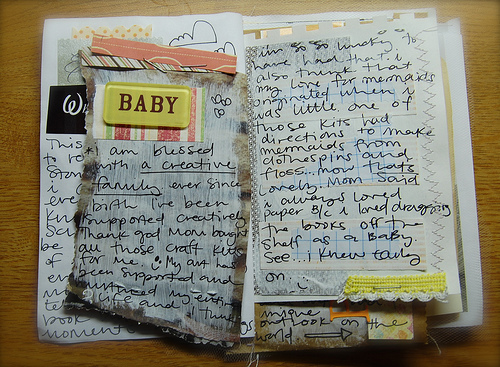 BABY
W
This
to re
I am blessed
with a creative
family ever since
birth i've been
supported creatively
Thank god Mom bought
all those craft kits
for me. My art has
been supported and
nurtured my entire
life and I think
book
moment
im so so lucky to
have had that. i
also think that
my love for mermaids
originated when i
was little one of
those kits had
directions to make
mermaids from
clothespins and
floss...now thats
lovely. Mom said
i always loved
paper B/c i loved dragging
the books off the
shelf as a baby.
see. i knew early
on.
unique
outlook on the
world.